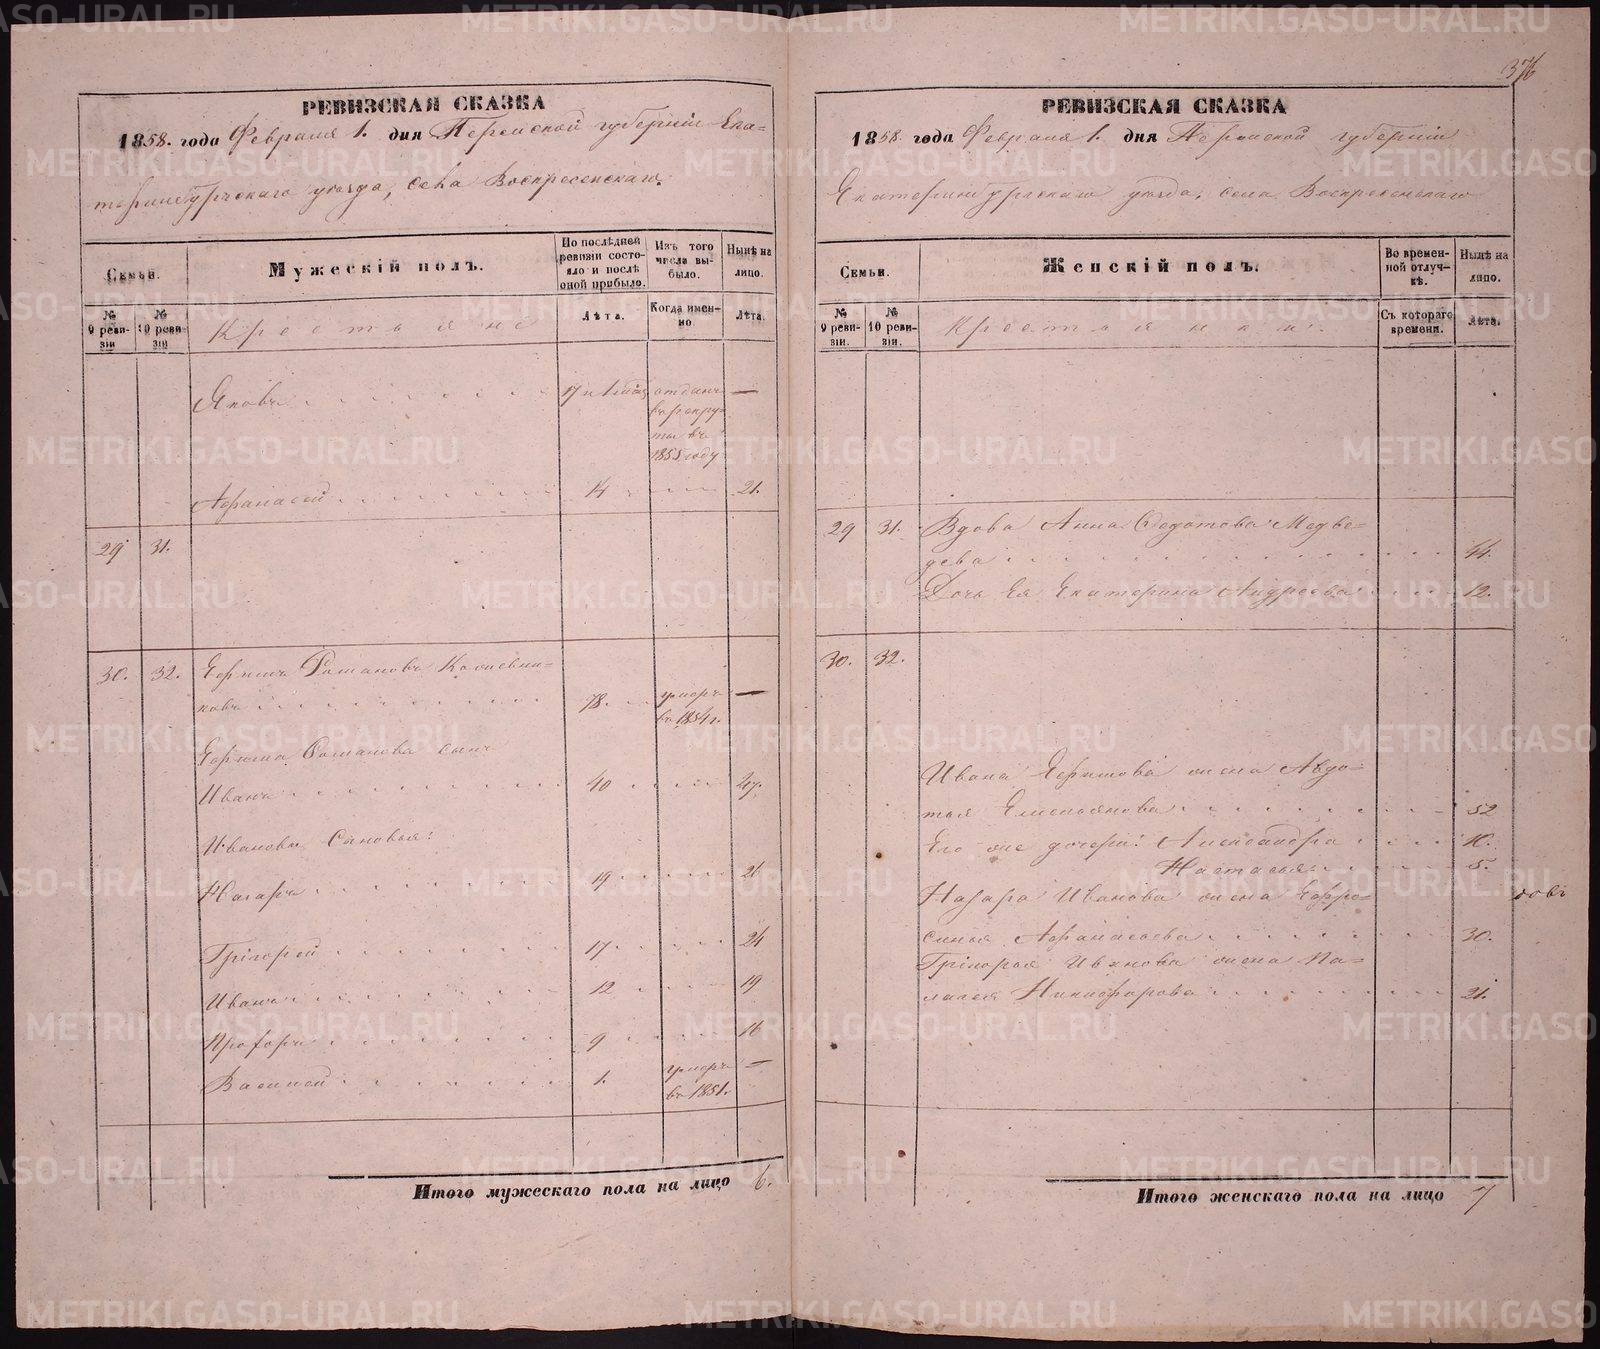 376
РЕВИЗСКАЯ СКАЗКА
1858. года Февраля 1. дня Пермской губернiи Ека-
теринбургскаго уѣзда, села Воскресенскаго.
Семьи.
Мужескiй полъ.
По послѣдней ревизiи состояло и послѣ оной прибыло.
Изъ того числа выбыло.
Нынѣ на лицо.
№ 9 ревизiи
№ 10 ревизiи
Крестьяне
Лѣта.
Когда именно.
Лѣта.
Яковъ 17 отданъ —
въ рекру-
ты въ
1855 году
Афанасей 14 21.
29 31.
30. 32. Ефимъ Романовъ
ковъ 78. умеръ —
въ 1854 г.
Ефима Романова сынъ
Иванъ 40 47.
Ивановы Сыновья:
Назаръ 19 26
Грiгорей 17 24
Иванъ 12 19
Прохоръ 9 16
Василей 1. умеръ —
въ 1851.
Итого мужескаго пола на лицо 6.
РЕВИЗСКАЯ СКАЗКА
1858 года Февраля 1. дня Пермской губернiи
Екатеринбургскаго уѣзда, села Воскресенскаго
Семьи.
Женскiй полъ.
Во временной отлучкѣ.
Нынѣ на лицо.
№ 9 ревизiи.
№ 10 ревизiи.
Крестьянки.
Съ котораго времени.
Лѣта.
29 31. Вдова Анна Федотова Медве-
дева 44.
Дочь Ея Екатерина Андреева 12.
30. 32.
Ивана Ефимова жена Авдо-
тья Емельянова 52
Его же дочери: Александра 10.
Настасья 5.
Назара Иванова жена Ефро-
синья Афанасьева 30.
Грiгорья Иванова жена Па-
лагея Никифорова 21.
Итого женскаго пола на лицо 7
METRIKI.GASO-URAL.RU